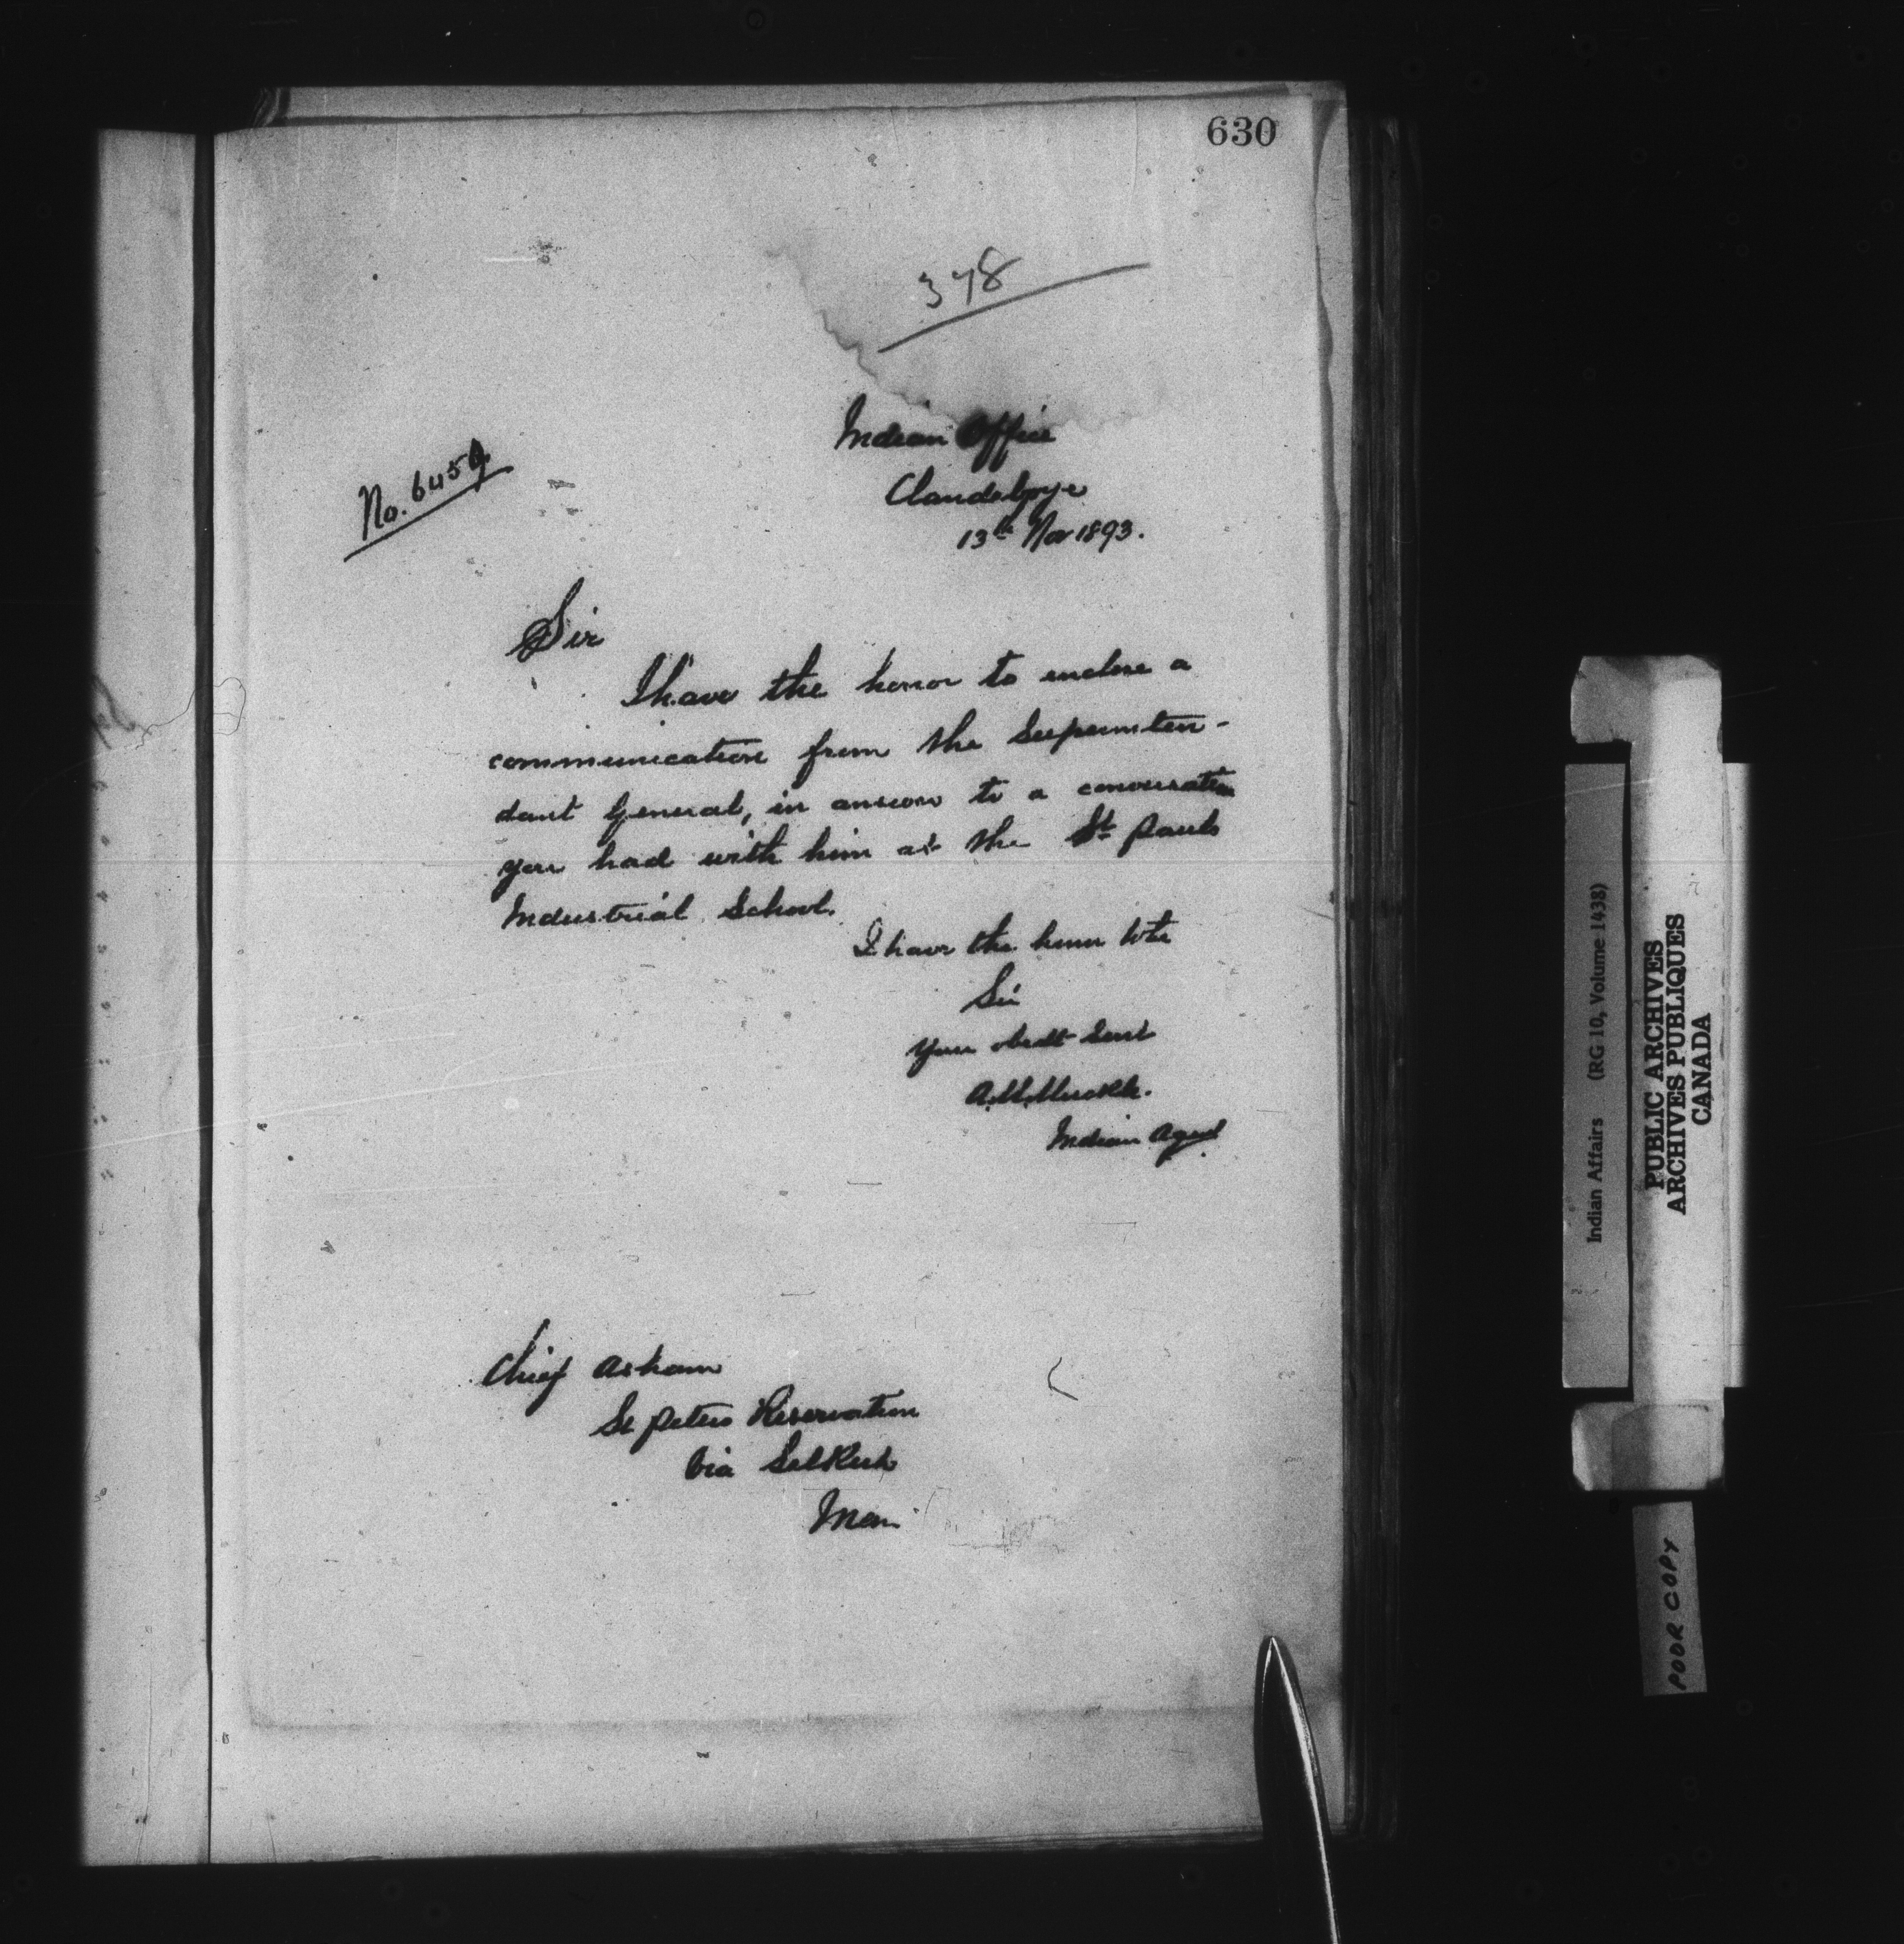 630
378
No. 6459
Indian Office
Clandeboye
13th Nov 1893.
Sir
I have the honor to enclose a
communication from the Superinten-
dant General, in answer to a conversation
you had with him at the St. Pauls
Industrial School.
I have the honor to be
Sir
Your obedt Servt
A.M. Muckle.
Indian Agent
Chief Asham
St Peters Reservation
Via Selkirk
Man
Indian Affairs (RG 10, Volume 1438)
PUBLIC ARCHIVES
ARCHIVES PUBLIQUES
CANADA
POOR COPY